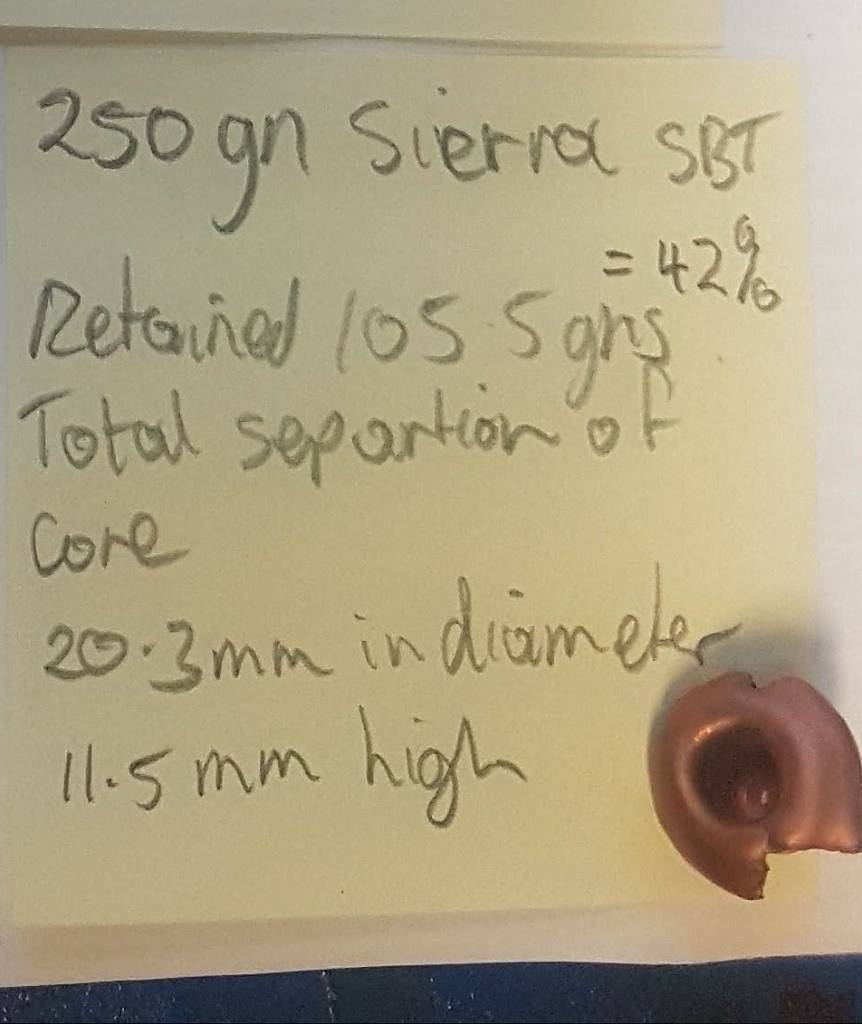 250 gn Sierra SBT
= 42%
Retained 105.5 gns
Total separtion of
Core
20.3mm in diameter
11.5 mm high